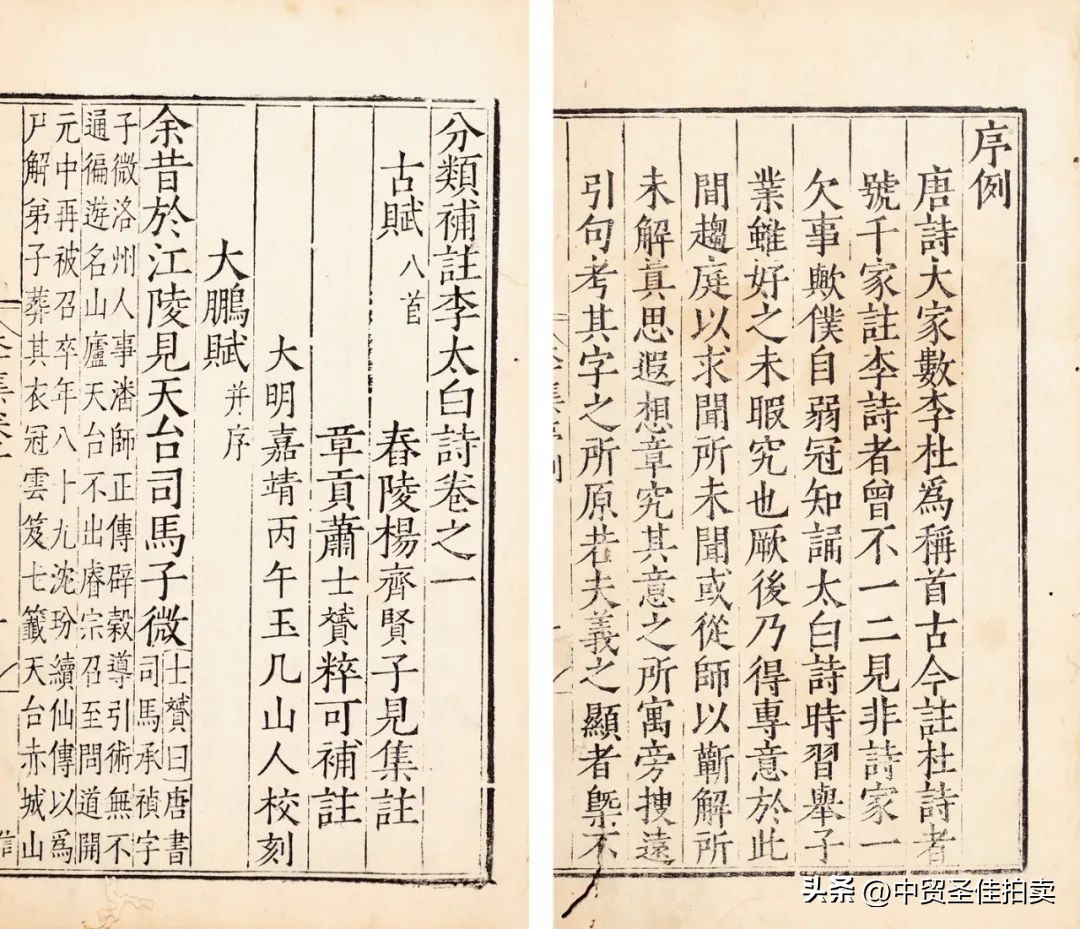 序例
唐詩大家數李杜為稱首古今註杜詩者
號千家註李詩者曾不一二見非詩家一
欠事歟僕自弱冠知誦太白詩時習舉子
業雖好之未暇究也厥後乃得專意於此
間趨庭以求聞所未聞或從師以蘄解所
未解真思遐想章究其意之所寓旁搜遠
引句考其字之所原若夫義之顯者槩不
分類補註李太白詩卷之一
古賦 八首 舂陵楊齊賢子見集註
章貢蕭士贇粹可補註
大明嘉靖丙午玉几山人校刻
大鵬賦 并序
余昔於江陵見天台司馬子微 士贇曰唐書
司馬承禎字
子微洛州人事潘師正傳辟穀導引術無不
通徧遊名山廬天台不出睿宗召至問道開
元中再被召卒年八十九沈玢續仙傳以為
尸解弟子葬其衣冠雲笈七籤天台赤城山
头条 @中贸圣佳拍卖